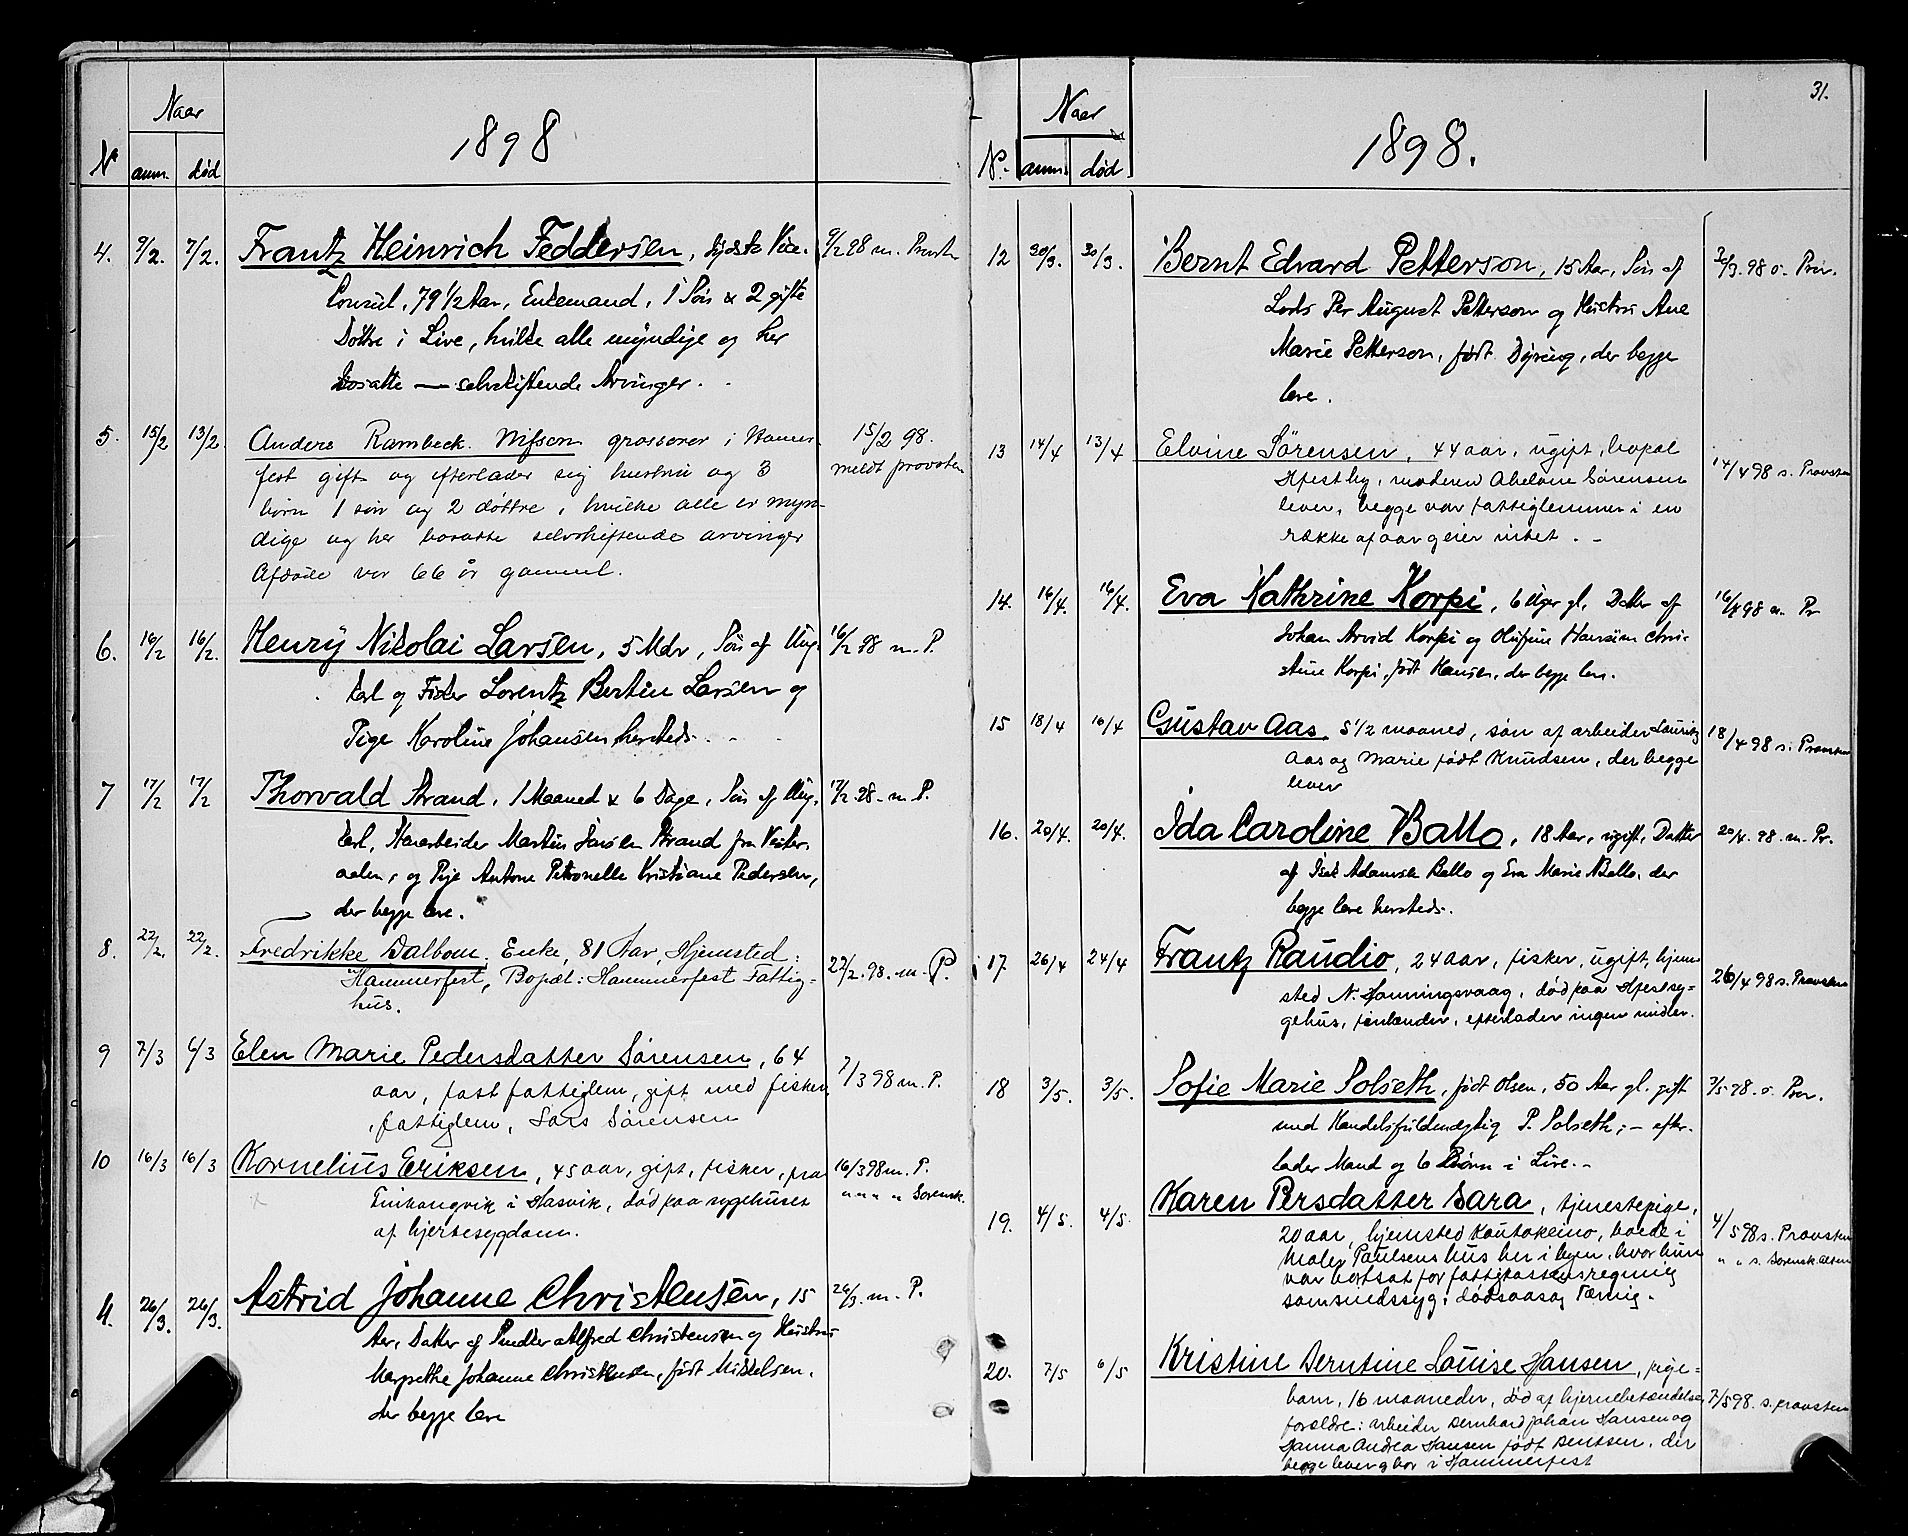 Naar
1898
N anm. død
4. 9/2. 7/2. Frantz Heinrich Feddersen, tydsk Vice- 9/2 98 m. Provsten
Consul, 79 1/2 Aar, Enkemand, 1 Søn & 2 gifte
Døttre i Live, hvilke alle myndige og her
bosatte — selvskiftende Arvinger.
5. 15/2 13/2. Anders Rambeck Nilsson grosserer i Hamer- 15/2 98.
fest gift og efterlader sig hustru og 3 meldt provsten
børn 1 søn og 2 døttre, hvilke alle er myn-
dige og her bosatte selvskiftende arvinger
Afdøde var 66 år gammel.
6. 16/2 16/2. Henry Nikolai Larsen, 5 Mdr, Søn af Ung- 16/2 98 m. P.
karl og Fisker Lorentz Bertin Larsen og
Pige Karoline Johansen hersteds.
7 17/2 17/2 Thorvald Strand, 1 Maaned & 6 Dage, Søn af Ung- 17/2 98 - m. P.
karl, Havarbeider Martin Strand fra Vester-
aalen, og Pige Antone Petronelle Kristiane Pedersen,
der begge leve.
8. 22/2. 22/2. Fredrikke Dalbom, Enke, 81 Aar, Hjemsted: 22/2. 98. m. P.
Hammerfest, Bopæl: Hammerfest Fattig-
hus.
9 7/3 6/3 Elen Marie Pedersdatter Sørensen, 64 7/3 98 m. P.
aar, fast fattiglem, gift med fisker,
fattiglem, Lars Sørensen
10 16/3 16/3 Kornelius Eriksen, 45 aar, gift, fisker, fra 16/3 98 m. P.
i Hasvik, død paa sygehuset " " " " Sorensk.
af hjertesygdom.
11. 26/3. 26/3. Astrid Johanne Christensen, 15 26/3. m. P.
Aar, Datter af Alfred Christensen og Hustru
Margrethe Johanne Christensen, født Mikkelsen,
der begge leve
31.
Naar
1898.
N. anm. død
12 30/3. 30/3. Bernt Edvard Petterson, 15 Aar, Søn af 30/3. 98 s. Prov.
Lods Per August Petterson og Hustru Ane
Marie Petterson, født Dyring, der begge
leve.
13 14/4 13/4 Elvine Sørensen, 44 aar, ugift, bopæl 14/4 98 s. Provsten
Hfest by, moderen Abelone Sørensen
lever, begge var fattiglemmer i en
række af aar og eier intet. -
14. 16/4. 16/4. Eva Kathrine Korpi, 6 Uger gl. Datter af 16/4 98 m. Pr
Johan Arvid Korpi og Olufine Hansine Chri-
stine Korpi, født Hansen, der begge leve.
15 18/4 16/4 Gustav Aas 5 1/2 maaned, søn af arbeider Lauritz 18/4 98 s. Provsten
Aas og Marie født Knudsen, der begge
lever
16. 20/4. 20/4. Ida Caroline Ballo, 18 Aar, ugift, Datter 20/4. 98. m. Pr.
af Isak Adamsen Ballo og Eva Marie Ballo, der
begge leve hersteds.
17. 26/4 24/4 Frantz Raudio, 24 aar, fisker, ugift, hjem- 26/4 98 s. Provsten
sted N. Honningsvaag, død paa Hfest sy-
gehus, finlænder, efterlader ingen midler.
18 3/5. 3/5. Sofie Marie Solseth, født Olsen, 50 Aar gl. gift 3/5 98 s. Prov.
med Handelsfuldmægtig P. Solseth; - efter-
lader Mand og 6 Børn i Live. -
19. 4/5. 4/5. Karen Persdatter Sara, tjenestepige,
20 aar, hjemsted Kautokeino, boede i 4/5 98 s. Provsten
Maler Paulsens hus her i byen, hvor hun " " s. Sorensk. Alten
var bortsat for fattigkassens regning
som sindssyg; dødsaarsag Tæring.
20. 7/5 6/5 Kristine Berntine Louise Hansen, pige-
barn, 16 maaneder, død af hjernebetændelse, 7/5 98. s. Provsten
forældre: arbeider Bernhard Johan Hansen og
Hanna Andrea Hansen født Bentsen, der
begge lever og bor i Hammerfest